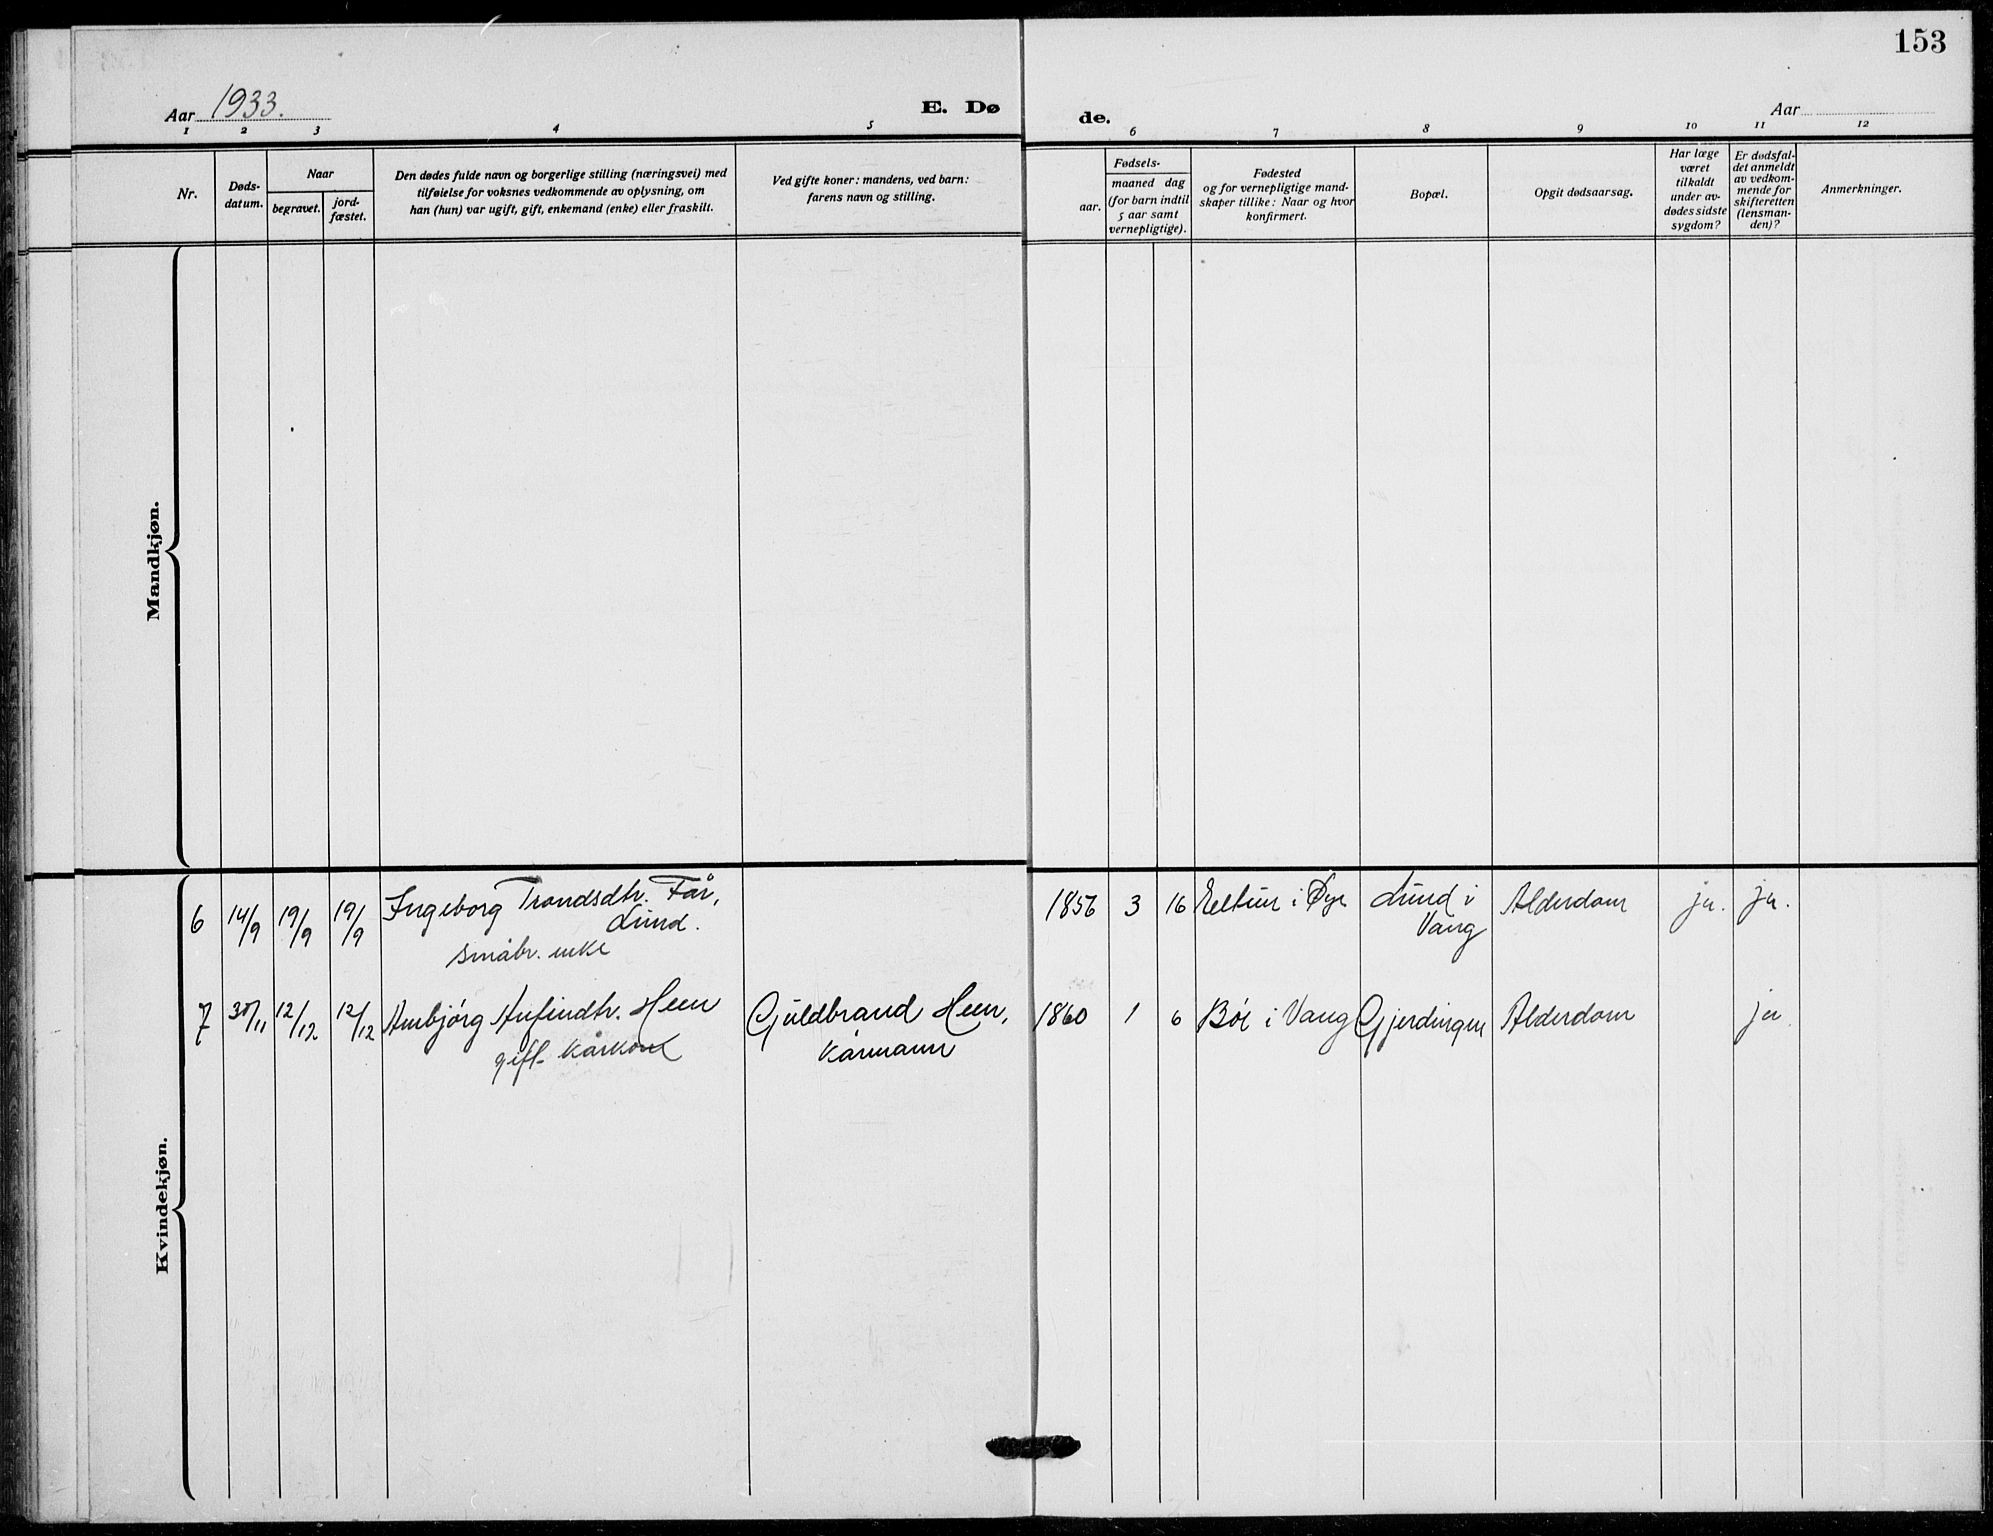 153
Aar 1933.
E. Dø
de.
Aar
1 2 3 4 5
6 7 8 9 10 11 12
Nr.
Døds-
datum.
Naar
begravet.
jord-
fæstet.
Den dødes fulde navn og borgerlige stilling (næringsvei) med
tilføielse for voksnes vedkommende av oplysning, om
han (hun) var ugift, gift, enkemand (enke) eller fraskilt.
Ved gifte koner: mandens, ved barn:
farens navn og stilling.
Fødsels-
aar.
maaned dag
(for barn indtil
5 aar samt
vernepligtige).
Fødested
og for vernepligtige mand-
skaper tillike: Naar og hvor
konfirmert.
Bopæl.
Opgit dødsaarsag.
Har læge
været
tilkaldt
under av-
dødes sidste
sygdom?
Er dødsfal-
det anmeldt
av vedkom-
mende for
skifteretten
(lensman-
den)?
Anmerkninger.
Mandkjøn.
Kvindekjøn.
6 14/9 19/9 19/9 Ingeborg Trondsdtr. Får, 1856 3 16 i Øye Lund i Alderdom ja. ja.
Lund. Vang
småbr. enke
7 30/11 12/12 12/12 Ambjørg Anfindtr. Heen Guldbrand Heen, 1860 1 6 Bøe i Vang Gjerdingen Alderdom ja
gift kårkone kårmann